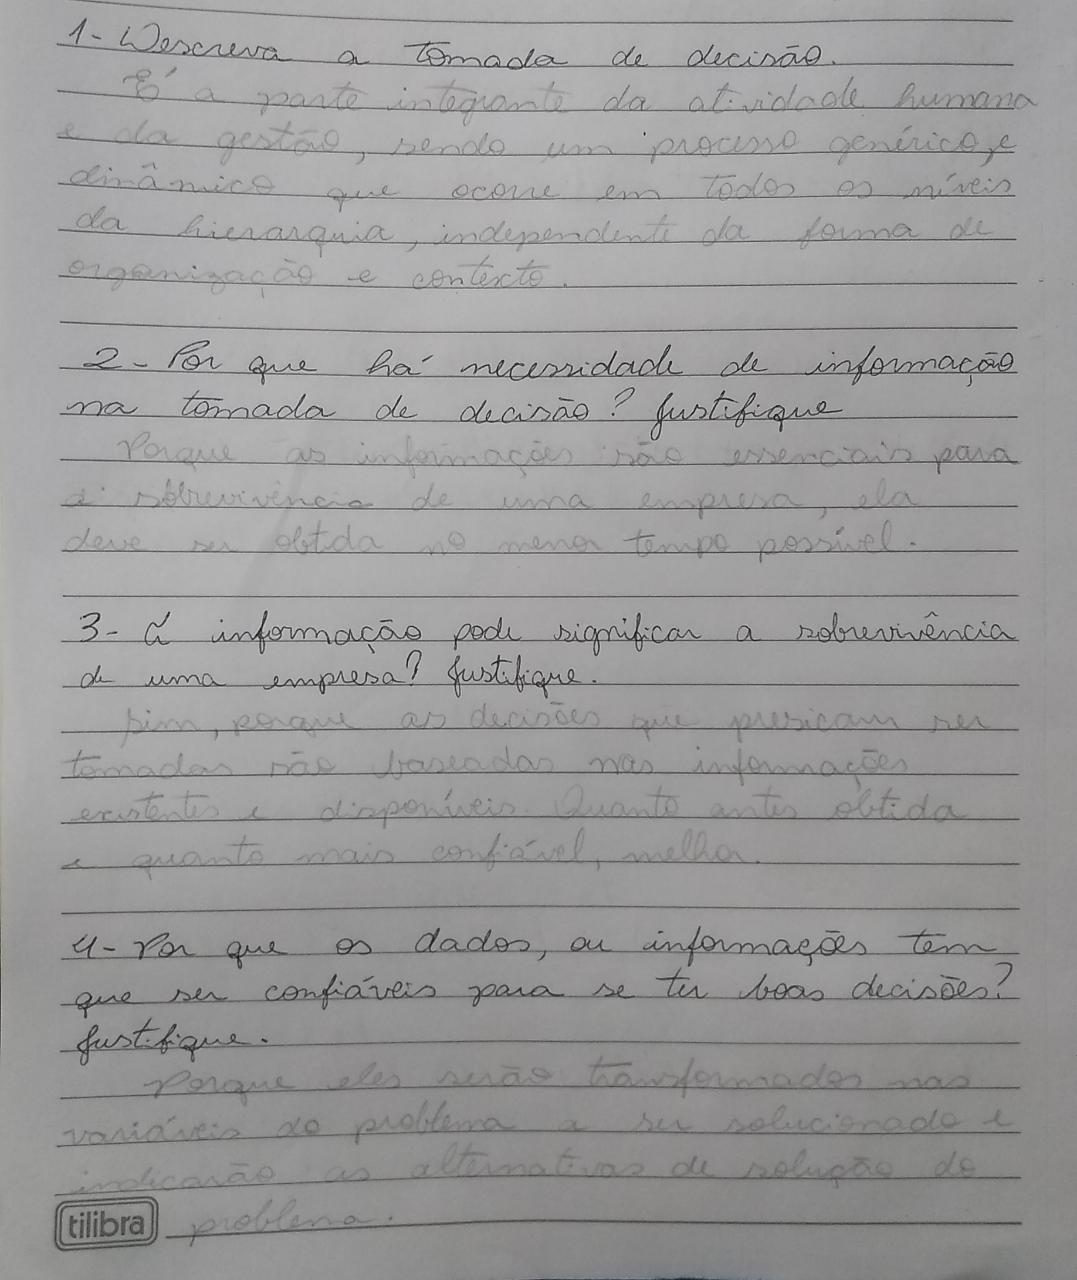 1- Descreva a tomada de decisão.
É a parte integrante da atividade humana
e da gestão, sendo um processo genérico, e
dinâmico que ocorre em todos os níveis
da hierarquia, independente da forma de
organização e contexto.
2- Por que há necessidade de informação
na tomada de decisão? Justifique
Porque as informações são essenciais para
a sobrevivência de uma empresa, ela
deve ser obtida no menor tempo possível.
3- A informação pode significar a sobrevivência
de uma empresa? Justifique.
Sim, porque as decisões que presicam ser
tomadas são baseadas nas informações
existentes e disponíveis. Quanto antes obtida
e quanto mais confiável, melhor.
4- Por que os dados, ou informações tem
que ser confiáveis para se ter boas decisões?
Justifique.
Porque eles serão transformados nas
variáveis do problema a ser solucionado e
indicarão as alternativas de solução do
problema.
tilibra